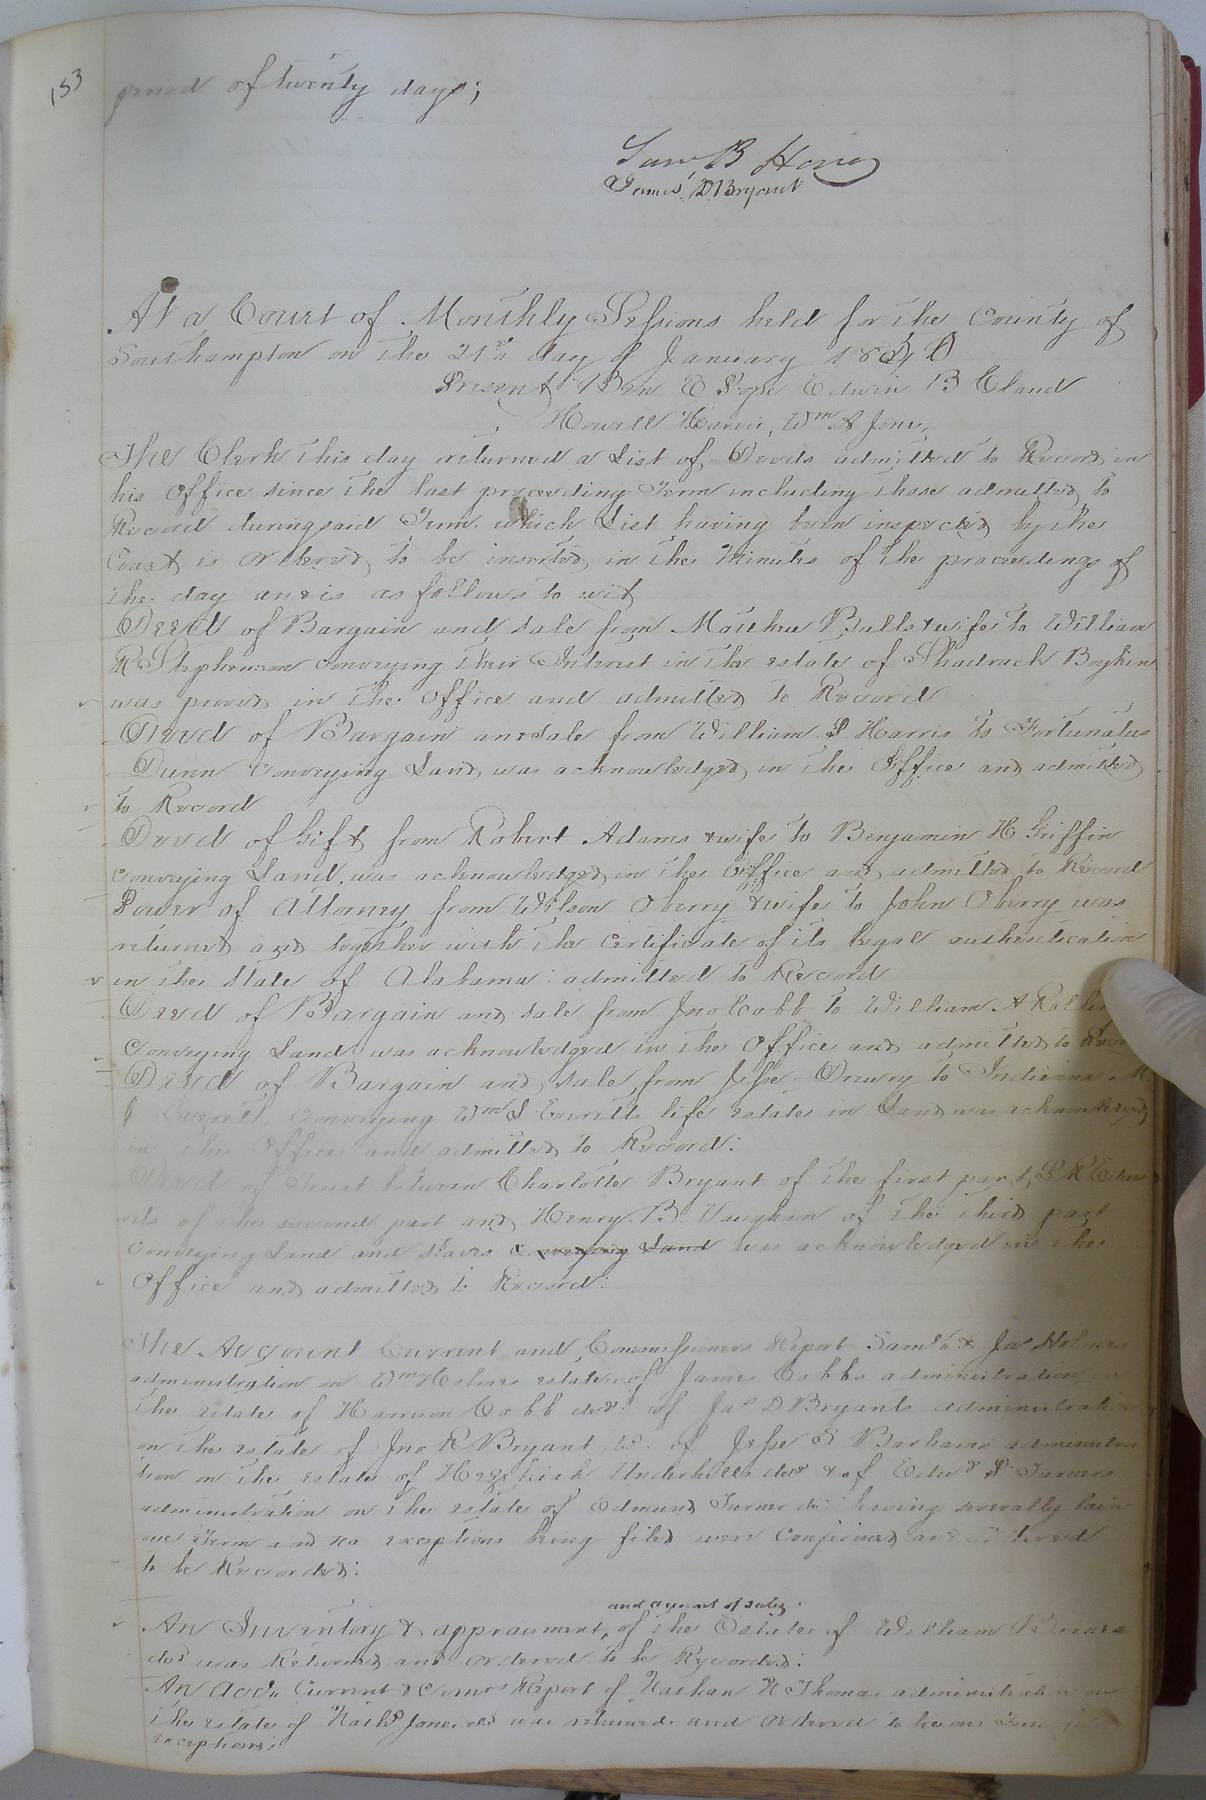 153
period of twenty days;
James D Bryant
At a Court of Monthly Sessions held for the County of
Southampton on the 21st day of January
Present Ben E Pope Edwin B Claud
Howell Harris, Wm A Jones,
The Clerk this day returned a List of Deeds admitted to Record in
his Office since the last preceeding Term including those admitted to
Record during said Term. which List having been inspected by the
Court is ordered to be inserted in the Minutes of the proceedings of
the day and is as follows to wit
Deed of Bargain and sale from Matthew Bulls & wife to William
R Stephenson conveying their Interest in the estate of Shadrack Boykin
was proved in the Office and admitted to Record
Deed of Bargain and sale from William S Harris to Fortunatus
Dunn conveying Land was acknowledged in the Office and admitted
to Record
Deed of Gift from Robert Adams & wife to Benjamin H Griffin
conveying Land was acknowledged in the Office and admitted to Record
Power of Attorney from Wilson Oberry & wife to John Oberry was
returned and together with the certificate of its legal authentication
in the State of Alabama: admitted to Record
Deed of Bargain and sale from Jno Cobb to William A
conveying Land was acknowledged in the Office and admitted to
Deed of Bargain and sale from Jesse Drewry to Indianna M
conveying Wm S Everetts life estate in Land was acknowledged
in the Office and admitted to Record:
Deed of Trust between Charlotte Bryant of the first part,
of the second part and Henry B. Vaughan of the third part
conveying Land and slaves conveying Land was acknowledged in the
Office and admitted to Record:
The Account Current and Commissioners Report Saml & Jas Holmes
administration on Wm Holmes estate of James Cobbs administration on
the estate of Harrison Cobb decd. of Jas D Bryants administration
on the estate of Jno R Bryant do. of Jesse S Barhams administra
tion on the estate of Hezekiah Underhills decd & of Edwd Turners
administration on the estate of Edmund Turner do: having severally lain
one Term and no exceptions being filed were confirmed and ordered
to be Recorded:
and account of sales.
An Inventory & appraisment, of the Estate of William
decd was Returned and ordered to be Recorded:
An Acct. Current & Coms Report of Nathan N Thomas administration on
the estate of Jones decd was returned and ordered to lie one Term for
exceptions;